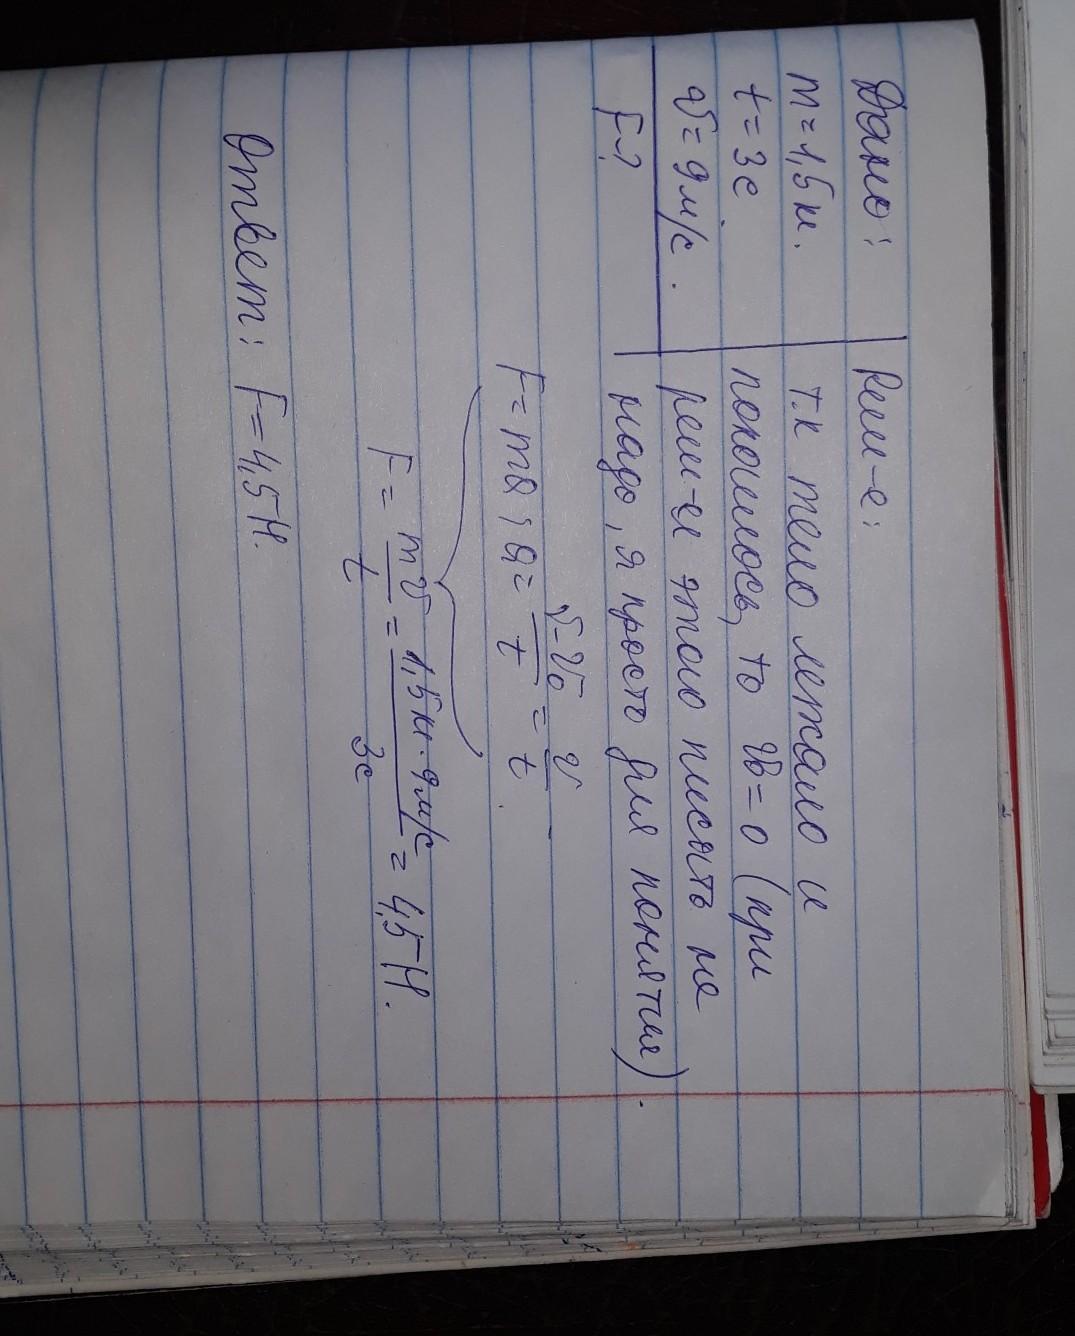 Дано:
m=1,5 кг.
t=3с
υ=9м/с.
F-?
Реш-е:
т.к тело лежало и
покоилось, то υ0=0 (при
реш-и этого писать не
надо, я просто для понятия).
F=ma; a= υ-υ0/t = υ/t.
F= mυ/t = 1,5кг·9м/с/3с = 4,5Н.
Ответ: F=4,5Н.